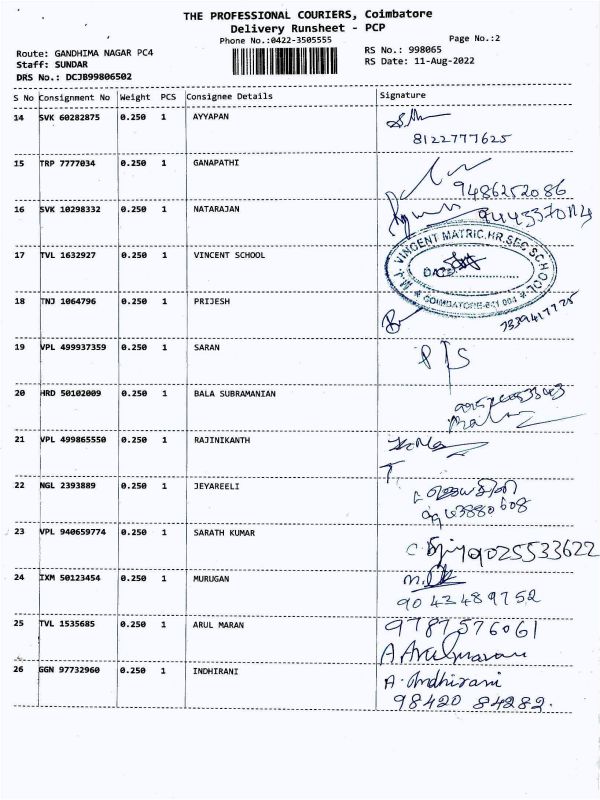 THE PROFESSIONAL COURIERS, Coimbatore
Delivery Runsheet - PCP
Phone No.:0422-3505555
Page No.:2
Route: GANDHIMA NAGAR PC4
RS No.: 998065
Staff: SUNDAR
RS Date: 11-Aug-2022
DRS No.: DCJB99806502
S No Consignment No Weight PCS Consignee Details Signature
14 SVK 60282875 0.250 1 AYYAPAN
8122777625
15 TRP 7777034 0.250 1 GANAPATHI
9486252086
16 SVK 10298332 0.250 1 NATARAJAN
17 TVL 1632927 0.250 1 VINCENT SCHOOL
VINCENT MATRIC.HR.SEC SCHOOL
DATE
COIMBATORE-641 004
18 TNJ 1064796 0.250 1 PRIJESH
7339417725
19 VPL 499937359 0.250 1 SARAN
20 HRD 50102009 0.250 1 BALA SUBRAMANIAN
21 VPL 499865550 0.250 1 RAJINIKANTH
22 NGL 2393889 0.250 1 JEYAREELI
23 VPL 940659774 0.250 1 SARATH KUMAR
9025533622
24 IXM 50123454 0.250 1 MURUGAN
9043489752
25 TVL 1535685 0.250 1 ARUL MARAN
9787576061
A Arulmaran
26 GGN 97732960 0.250 1 INDHIRANI
A. Indhirani
98420 84282.